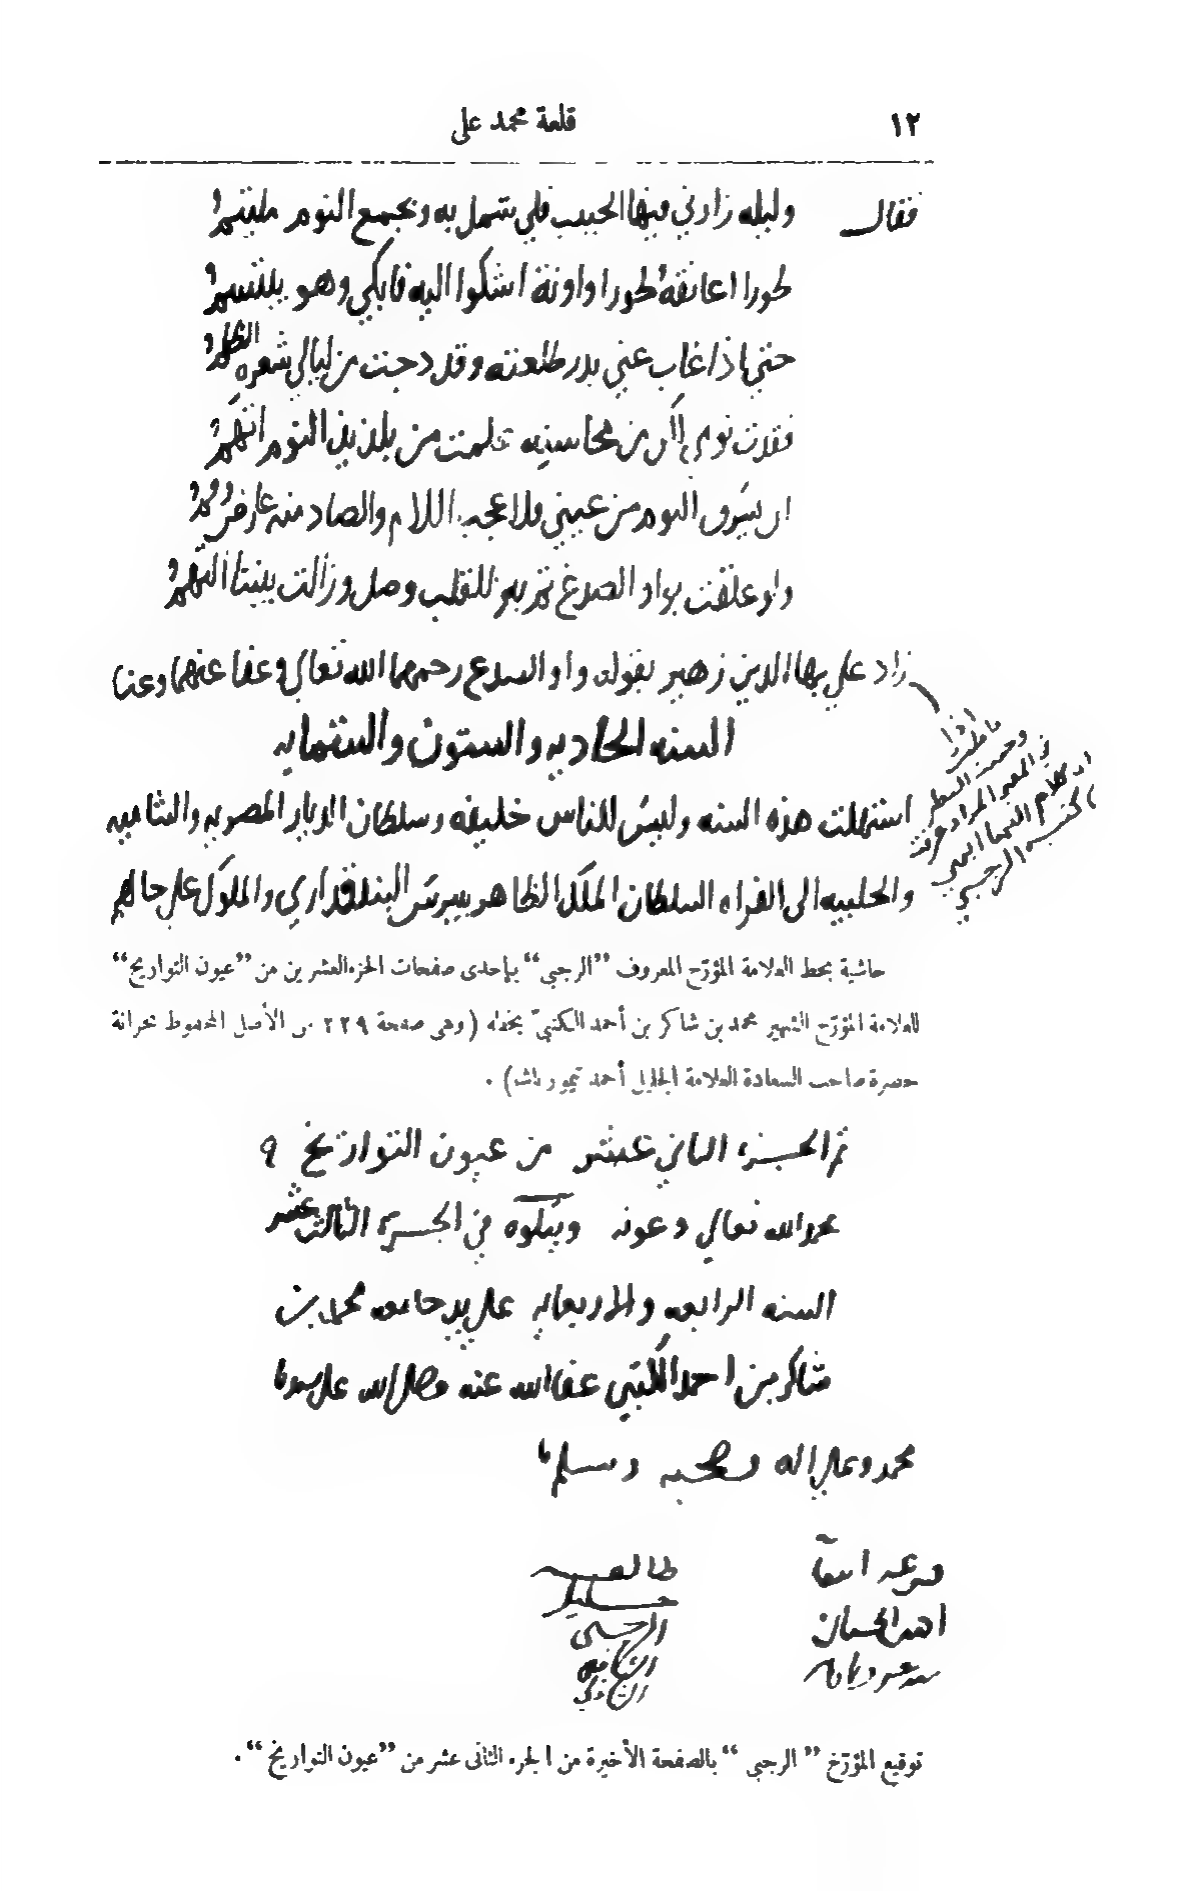 ١٢ قلعة محمد علي
فقال وليله زارني فيها الحبيب فلي شمل به وبجمع النوم ملتئم
طورا اعانقه طورا واونة اشكوا اليه فابكي وهو يبتسم
حتي اذا غاب عني بدر طلعته وقد دجت من ليالي شعره الظلم
فقلات نومي من محاسنه علمت من بلذيذ النوم اتهم
ان يسرق النوم من عيني فلا عجب اللام والصاد منه عارض وفم
واو علقت بواو الصدغ ثم به للقلب وصل وزالت بيننا التهم
زاد علي بها الدين زهير بقوله واو الصدغ رحمهما الله تعالي وعفا عنهما وعنا
السنه الحاديه والستون والستمايه
استهلت هذه السنه وليس للناس خليفه وسلطان الديار المصريه والشاميه
والحلبيه الى الفراه السلطان الملك الظاهر بيبرس البندقداري والملوك على حالهم
اذا
ما طبت
وحسبت السطر
المعبر المراد عرفت
ان كلام
كتبه الرجبي
حاشية بخط العلامة المؤرّخ المعروف ”الرجبي“ بإحدى صفحات الجزء العشرين من ”عيون التواريخ“
للعلامة المؤرّخ الشهير محمد بن شاكر بن أحمد الكتبيّ بخطه (وهى صفحة ٢٢٩ من الأصل المحفوظ بخزانة
حضرة صاحب السعادة العلامة الجليل أحمد تيمور باشا) .
تم الجزء الثاني عشر من عيون التواريخ
بحمد الله تعالي وعونه ويتلوه في الجزء الثالث عشر
السنه الرابعه والاربعمايه على يد جامعه محمد بن
شاكر بن احمد الكتبي عفا الله عنه وصلى الله على سيدنا
محمد وعلى اله وصحبه وسلم
طالعه
خليل
الرجبي
الشافعي
الشاذلي
توقيع المؤرّخ ”الرجبي“ بالصفحة الأخيرة من الجزء الثانى عشر من ”عيون التواريخ“ .